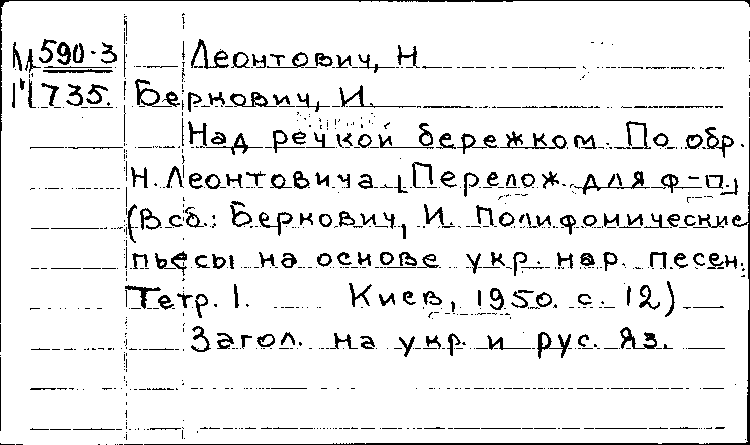 М 590-3 Леонтович, Н.
М 735. Беркович, И.
Над речкой бережком. По обр.
Н. Леонтовича [Перелож. для ф-п.]
(В сб.: Беркович, И. Полифомические
пьесы на основе укр. нар. песен.
Тетр. 1. Киев, 1950. с. 12)
Загол. на укр. и рус. яз.